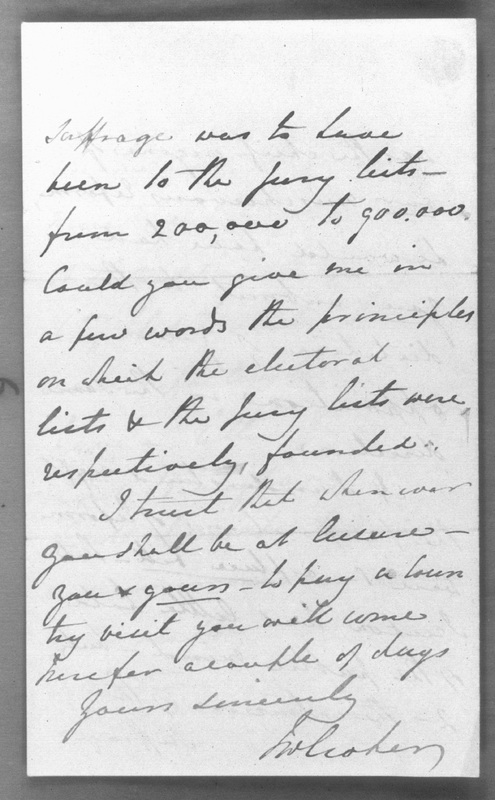 Suffrage was to have
been to the Jury lists—
from 200,000 to 900.000.
Could you give me in
a few words the principles
on which the electoral
lists & the Jury lists were,
respectively, founded.
I trust that whenever
you shall be at leisure—
you & yours—to pay a coun
try visit you will come
here for a couple of days
Yours sincerely
JW Croker